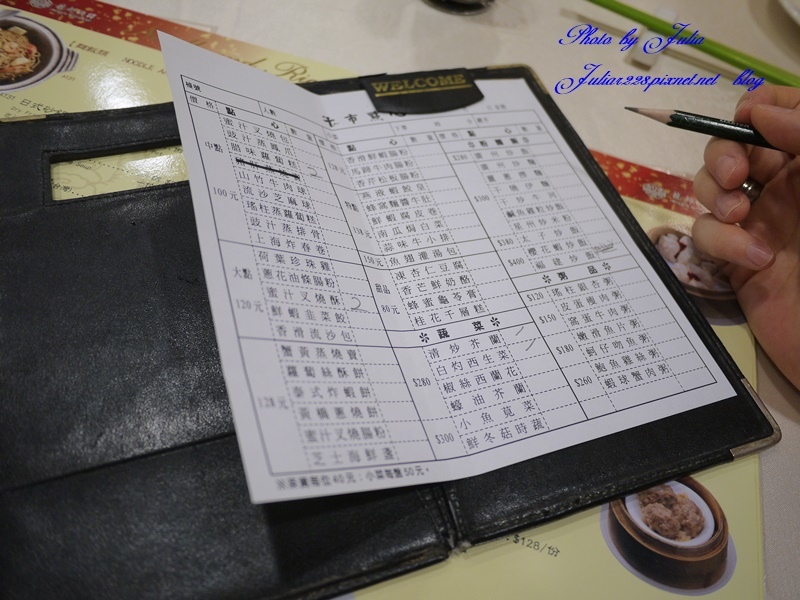 Photo by Julia
Julia1228pixnet.net blog
WELCOME
點 心
人數
價格
中點
100元
蜜汁叉燒包
豉汁蒸鳳爪
腊味蘿蔔糕
山竹牛肉球
流沙芝麻球
瑤柱蒸蘿蔔糕
豉汁蒸排骨
上海炸春卷
大點
120元
荷葉珍珠雞
蔥花油條腸粉
蜜汁叉燒酥
鮮蝦韭菜餃
香滑流沙包
128元
蟹黃蒸燒賣
蘿蔔絲酥餅
泰式炸蝦餅
黃橋蔥燒餅
蜜汁叉燒腸粉
芝士海鮮盞
特點
香滑鮮蝦腸粉
蜂窩釀牛肚
鮮蝦腐皮卷
南瓜焗白菜
蒜味牛小排
150元
魚翅灌湯包
甜品
80元
凍杏仁豆腐
香芒鮮奶酪
蜂蜜龜苓膏
桂花千層糕
蔬菜
$280
清炒芥蘭
白灼西生菜
椒絲西蘭花
蠔油芥蘭
$300
小魚莧菜
鮮冬菇時蔬
點 心
$280
$300
干炒牛河
星州炒米粉
$380
太子炒飯
櫻花蝦炒飯
$400
福建炒飯
粥品
$120
瑤柱銀杏粥
$150
皮蛋瘦肉粥
窩蛋牛肉粥
嫩滑魚片粥
$180
蚵仔吻魚粥
鮑魚雞絲粥
$260
蝦球蟹肉粥
※茶資每位40元；小菜每盤50元。
$128/份